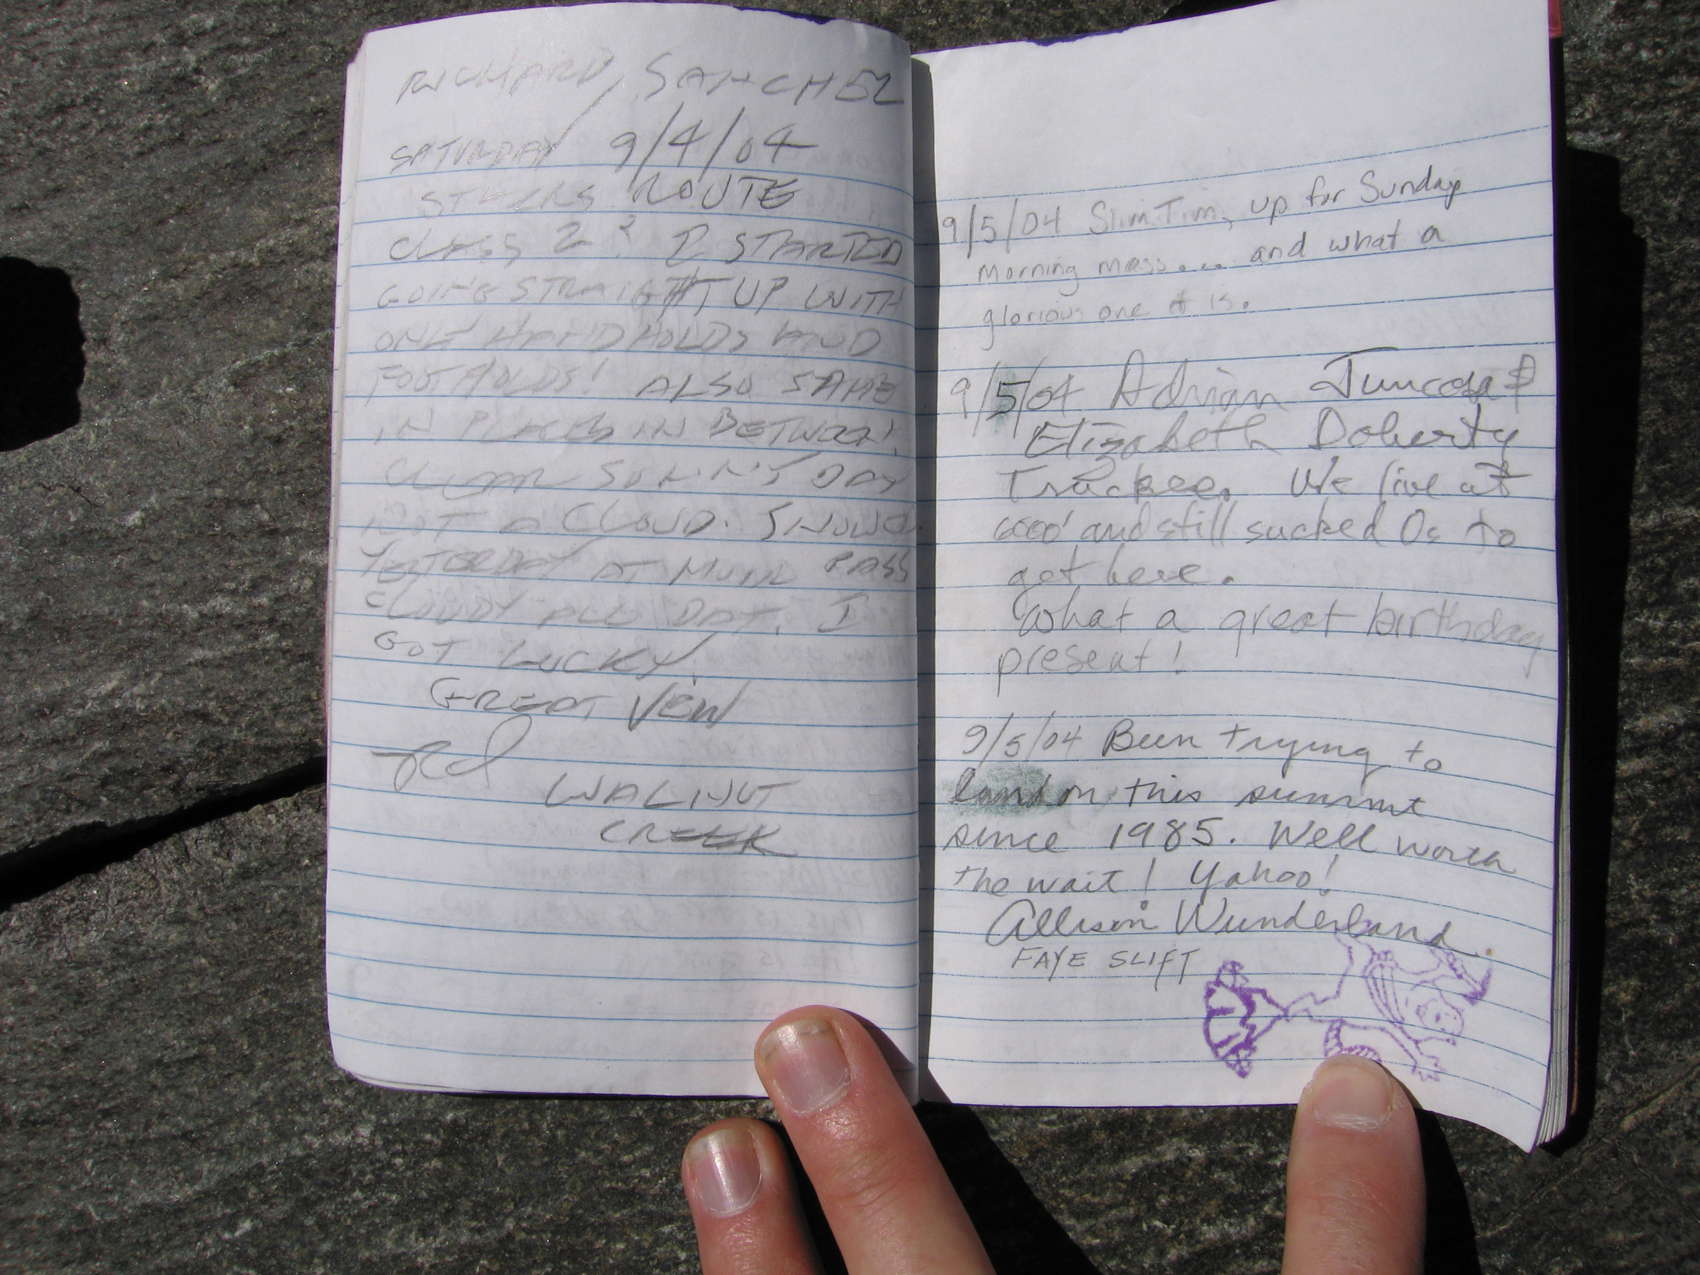 RICHARD SANCHEZ
SATURDAY 9/4/04
ROUTE
CLASS 2? I STARTED
GOING STRAIGHT UP WITH
ONLY HANDHOLDS AND
FOOTHOLDS! ALSO SAME
IN PLACES IN BETWEEN.
CLEAR SUNNY DAY
NOT A CLOUD. SNOWED
YESTERDAY AT MUIR PASS
CLOUDY ALL DAY. I
GOT LUCKY!
GREAT VEW
WALNUT
CREEK
9/5/04 Slim Tim, up for Sunday
morning mass.... and what a
glorious one it is.
9/5/04 Adrian Juncosa &
Elizabeth Doherty
Truckee. We live at
6000' and still sucked O2 to
get here.
What a great birthday
present!
9/5/04 Been trying to
land on this summit
since 1985. Well worth
the wait! Yahoo!
Allison Wunderland.
FAYE SLIFT